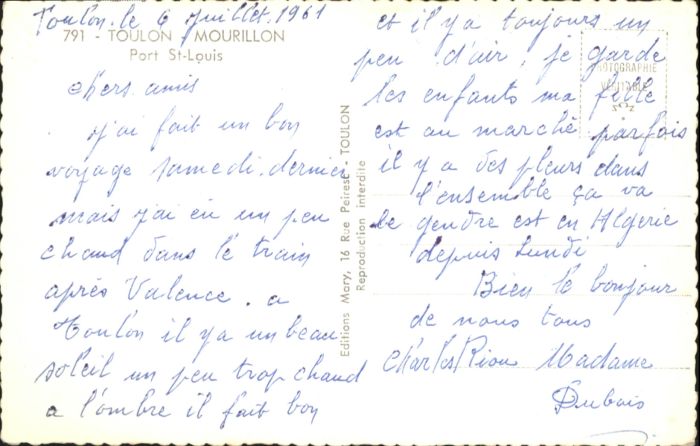 Toulon. le 6 Juillet. 1961
791 - TOULON - MOURILLON
Port St-Louis
chers amis
j'ai fait un bon
voyage samedi. dernier
mais j'ai eu un peu
chaud dans le train
après Valence. a
Toulon il y a un beau
soleil un peu trop chaud
a l'ombre il fait bon
Editions Mary, 16 Rue Peiresc - TOULON
Reproduction interdite
et il y a toujours un
peu d'air. je garde
les enfants ma fille
est au marché parfois
il y a des pleurs dans
l'ensemble ça va
le gendre est en Algerie
depuis Lundi
Bien le bonjour
de nous tous
Charles Riou Madame
Dubois
PHOTOGRAPHIE
VERITABLE